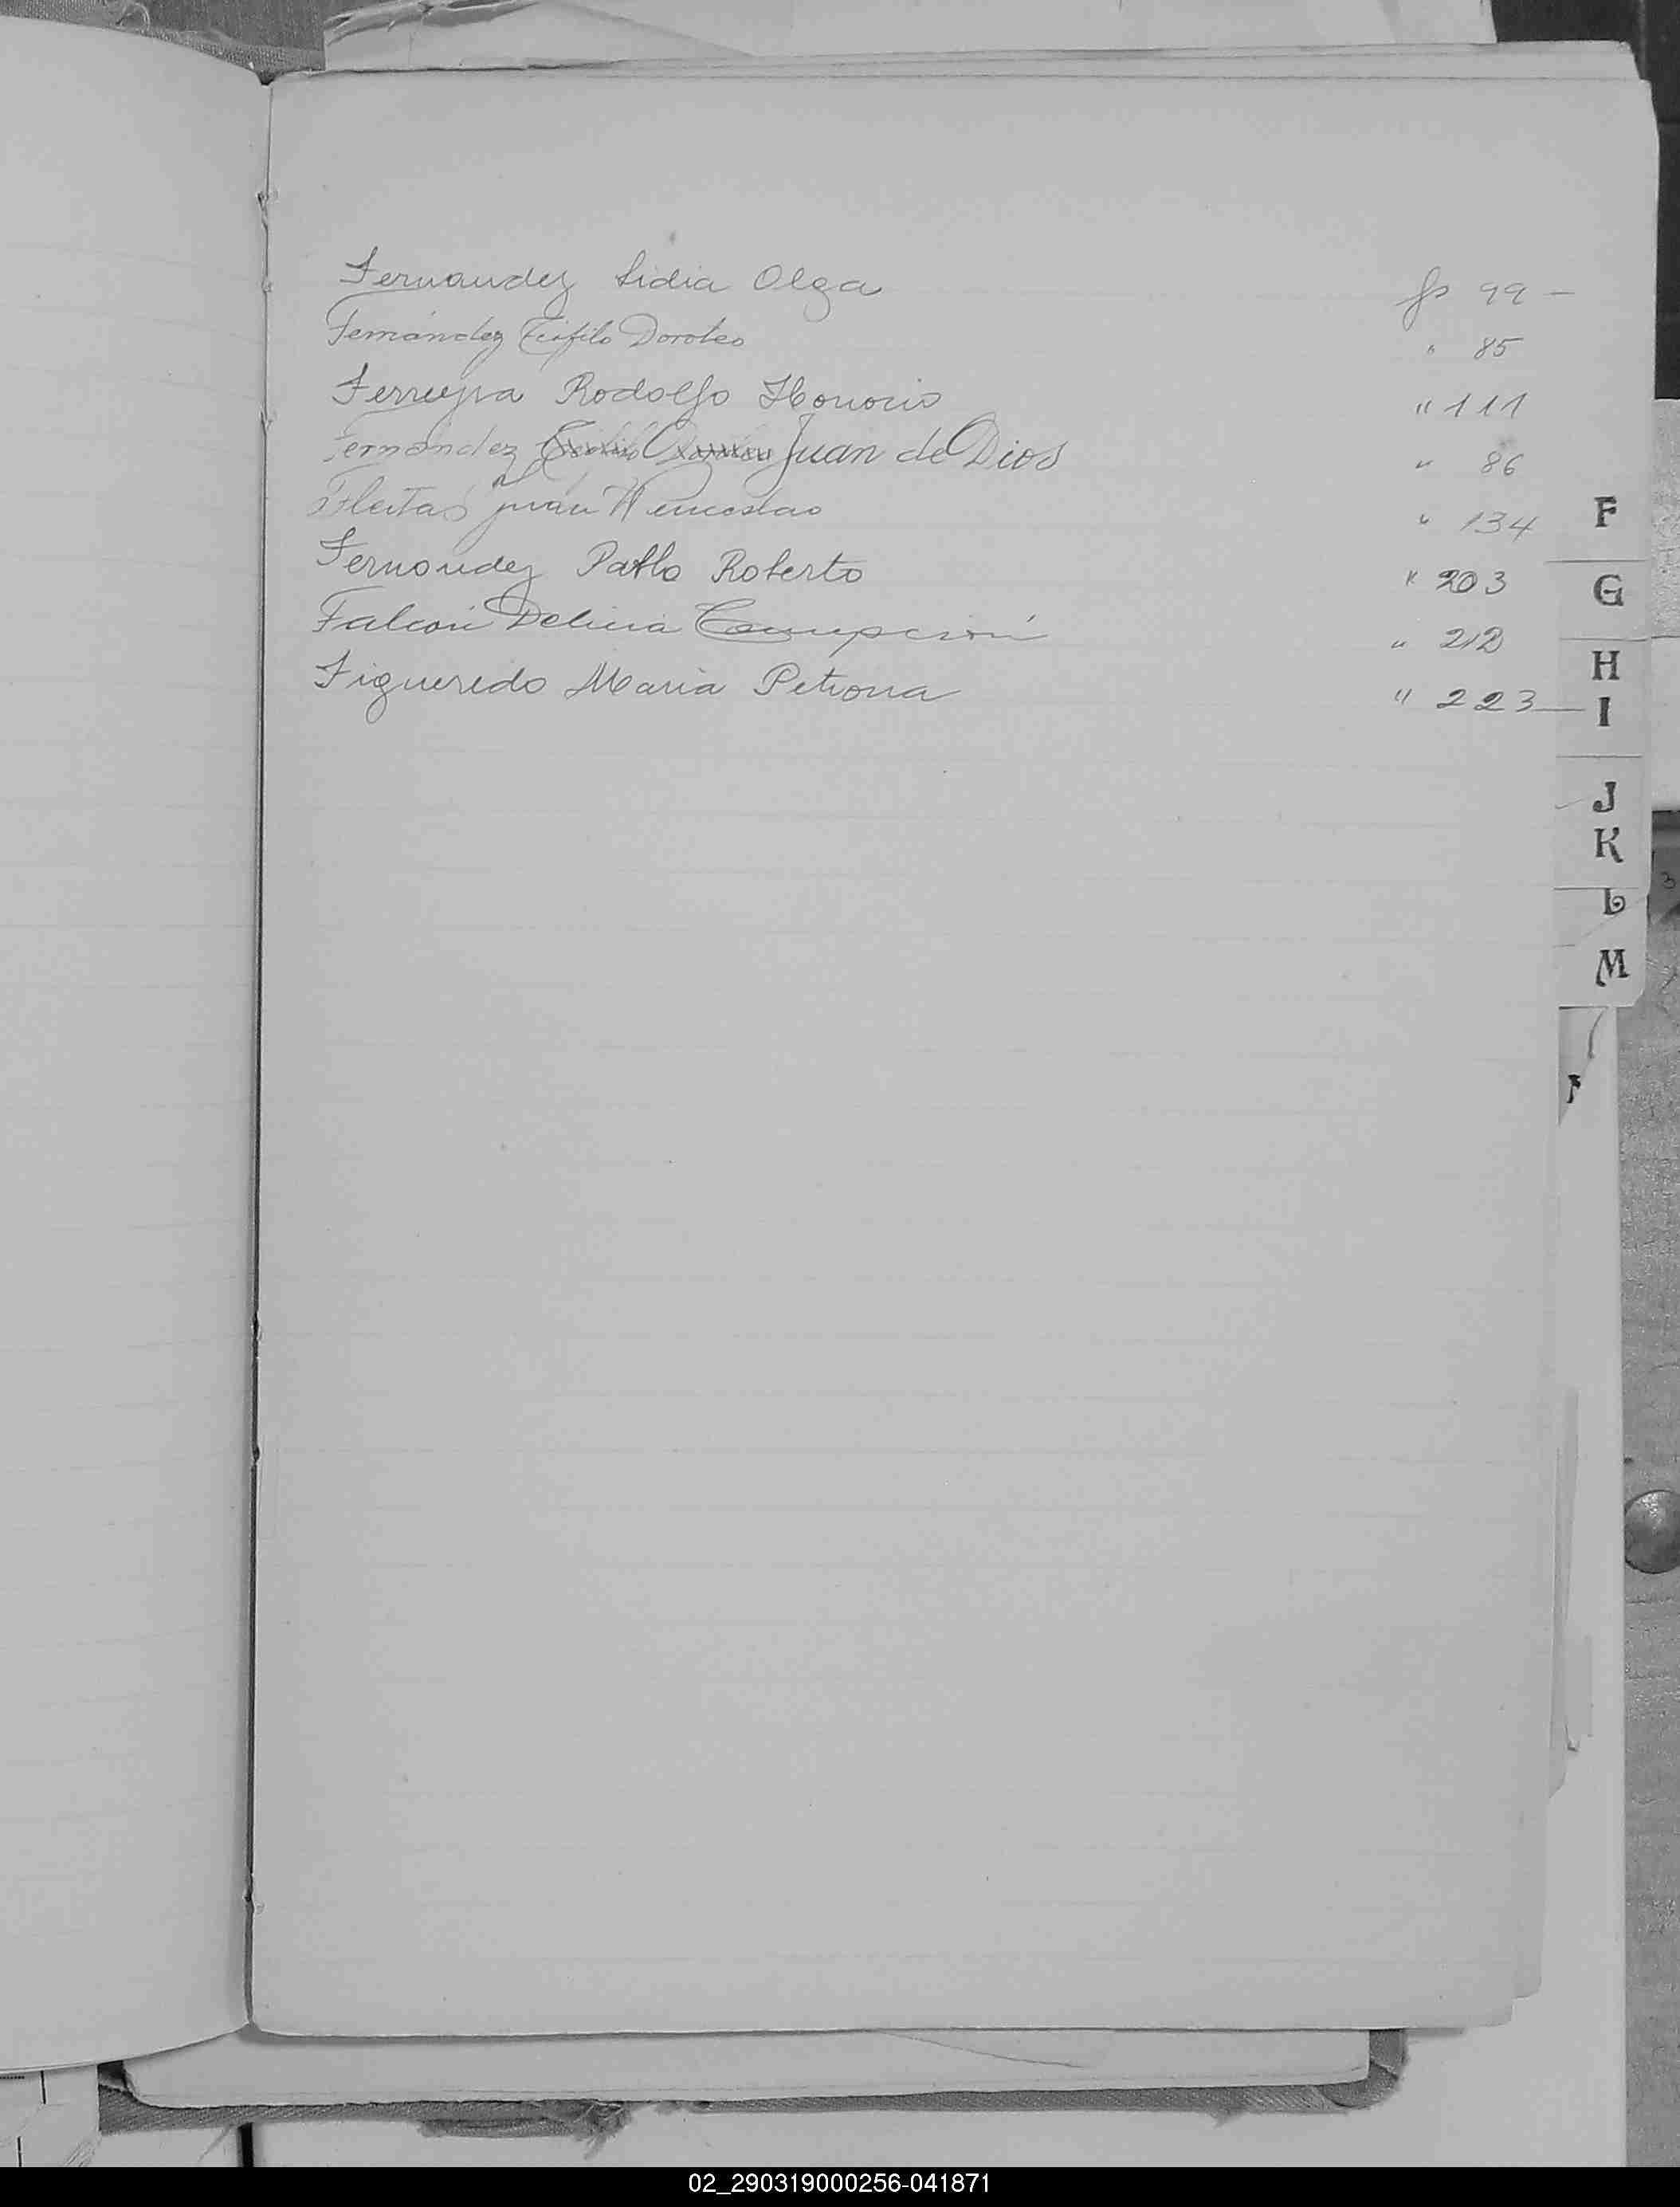 Fernandez Lidia Olga fs 99 -
Fernández Teófilo Doroteo " 85
Ferreyra Rodolfo Honorio " 111
Fernández Juan de Dios " 86
Fleitas Juan Wenceslao " 134
Fernandez Pablo Roberto " 203
Falcón Delicia " 212
Figueredo Maria Petrona " 223
F
G
H
I
J
K
L
M
02_290319000256-041871